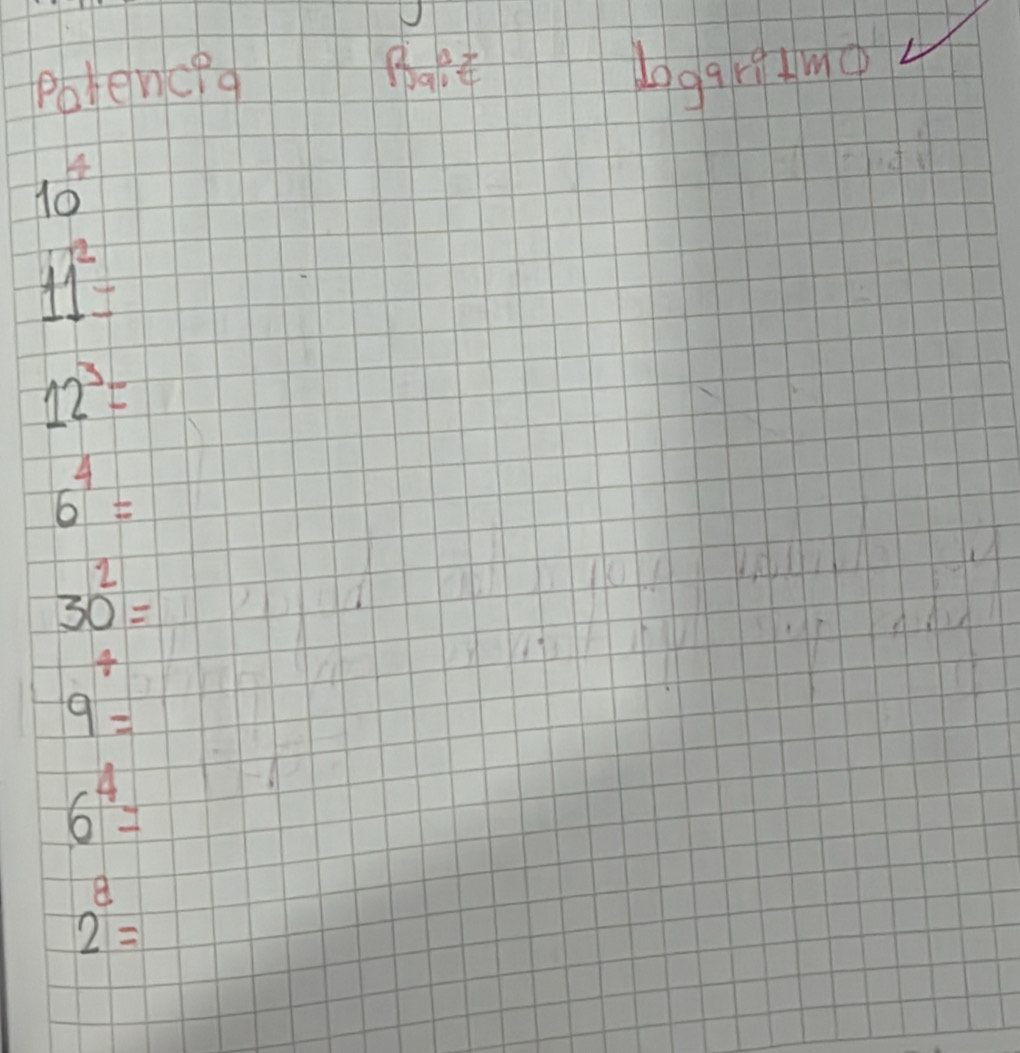 Potencia Raiz Logaritmo
10⁴
11²=
12³=
6⁴=
30²=
9⁴=
6⁴=
2⁸=